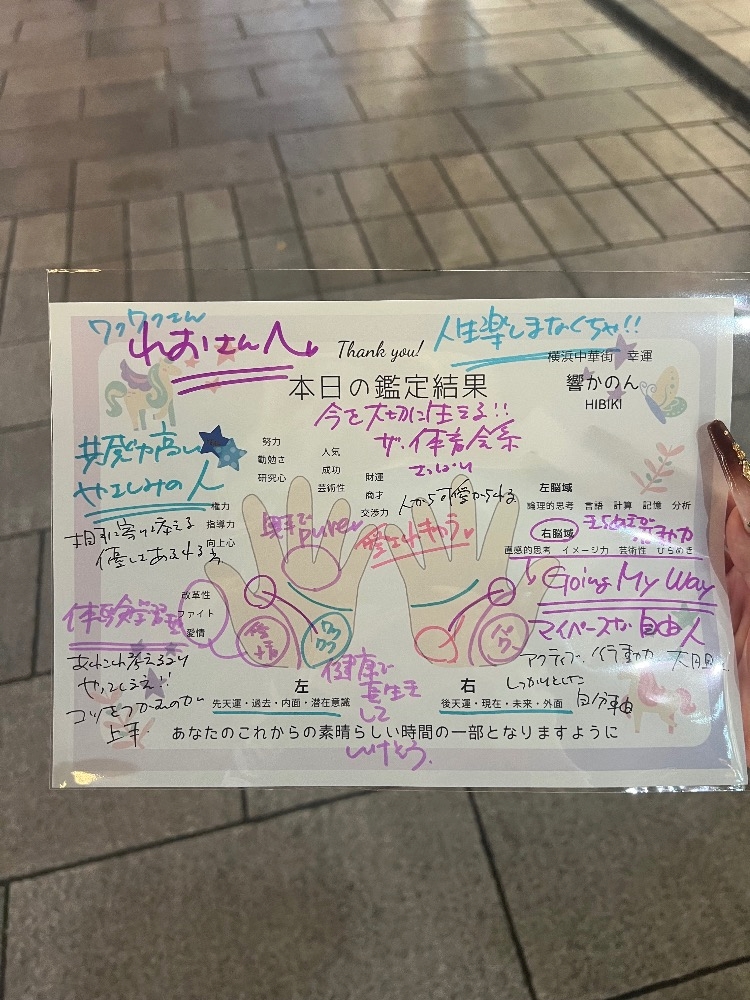 ワクワクさん
れおさんへ
Thank you!
人生楽しまなくちゃ!!
横浜中華街 幸運
響かのん
HIBIKI
本日の鑑定結果
今を大切に生きる!!
ザ・体育会系
さっぱり
共感力高い
やさしみの人
相手に寄り添える
優しさあふれる
努力
勤勉さ
研究心
人気
成功
芸術性
財運
商才
交渉力
権力
指導力
向上心
人から可愛がられる
愛されキャラ
pure
左脳域
論理的思考 言語 計算 記憶 分析
右脳域
直感的思考 イメージ力 芸術性 ひらめき
Going My Way
マイペースな自由人
アクティブ、行動力 大胆
しっかりとした
自分軸
改革性
ファイト
愛情
体験学習型
あれこれ考えるより
やってしまえ!!
コツをつかむのが
上手
愛情
ワクワク
パワー
健康で
長生き
して
いけそう。
左
先天運・過去・内面・潜在意識
右
後天運・現在・未来・外面
あなたのこれからの素晴らしい時間の一部となりますように